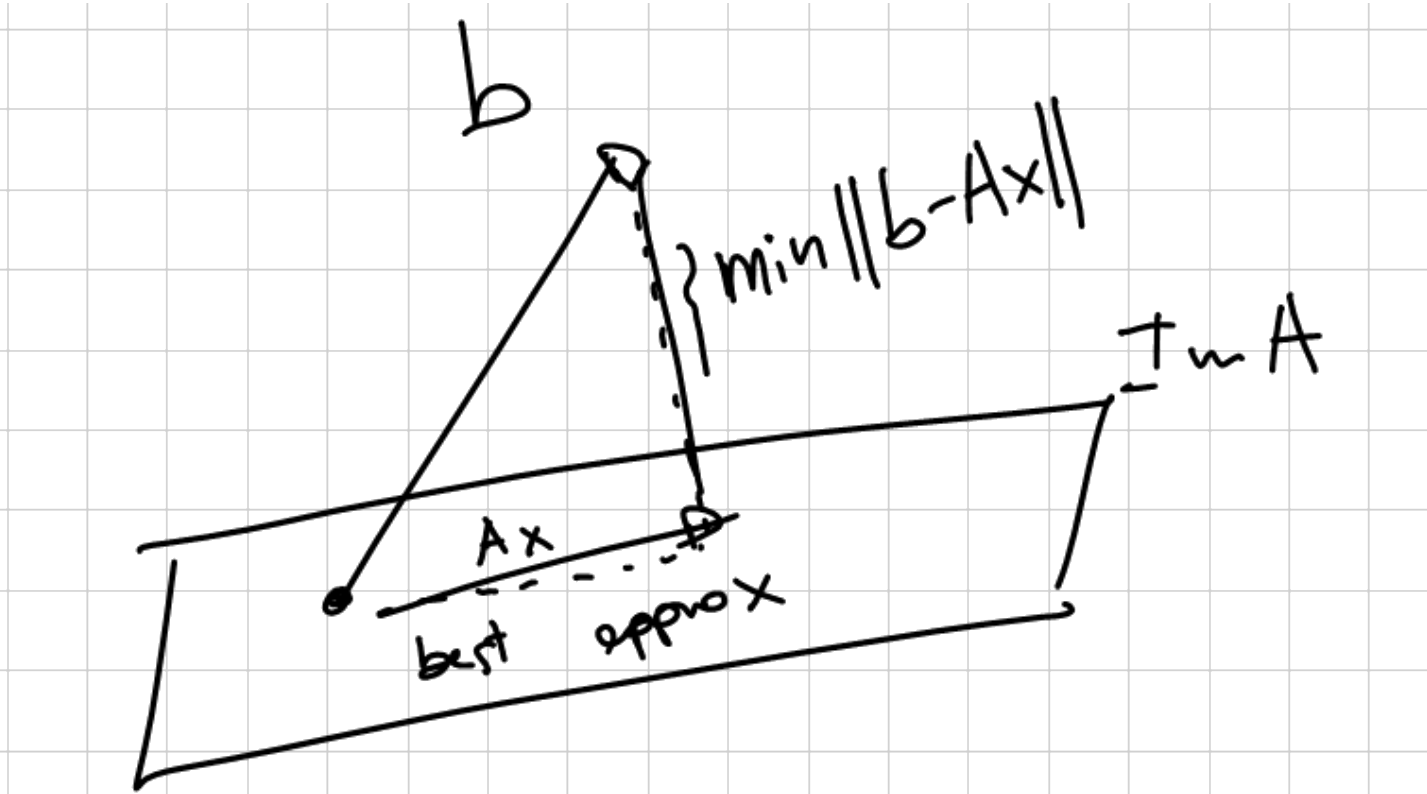 b
min ||b-Ax||
Im A
Ax
best approx